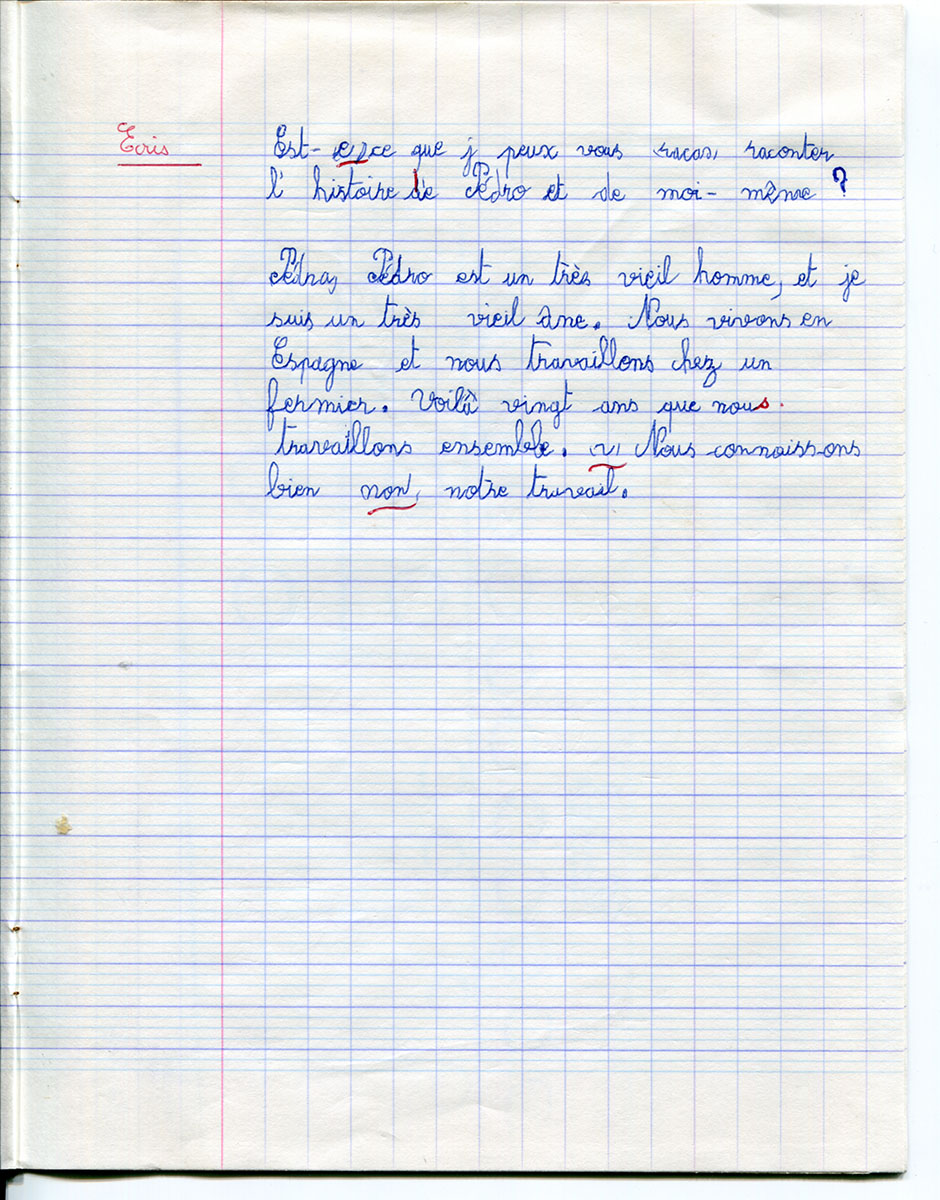 Ecris
Est-(er)ce que j peux vous (racas) raconter
l'histoire de Pédro et de moi-même ?
(Pédra) Pédro est un très vieil homme, et je
suis un très vieil âne. Nous vivons en
Espagne et nous travaillons chez un
fermier. Voilà vingt ans que nous
travaillons ensemble. (v) Nous connaissons
bien (non) notre travail.